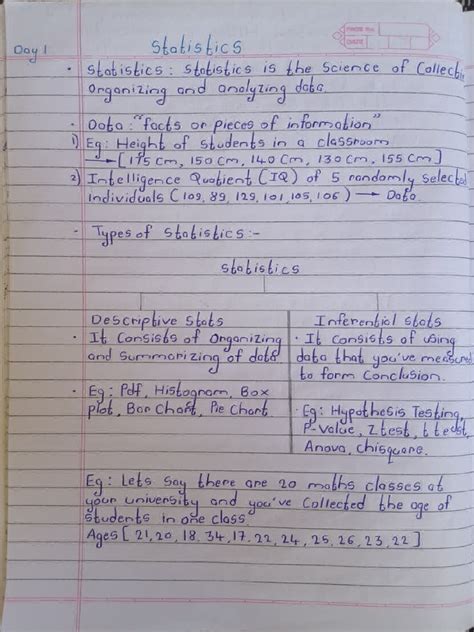 Day 1
Statistics
PAGE No.
DATE
• Statistics : Statistics is the Science of Collectin
Organizing and analyzing data.
• Data : "facts or pieces of information"
1) Eg: Height of students in a classroom
→ [175 Cm, 150 Cm, 140 Cm, 130 Cm, 155 Cm]
2) Intelligence Quotient (IQ) of 5 randomly selected
individuals (109, 89, 129, 101, 105, 106) → Data.
- Types of Statistics :-
Statistics
Descriptive Stats
• It Consists of Organizing
and Summarizing of data
• Eg: Pdf, Histogram, Box
plot, Bar Chart, Pie Chart
Inferential Stats
• It consists of using
data that you've measured
to form Conclusion.
• Eg: Hypothesis Testing,
P-value, Z test, t test,
Anova, chisquare.
Eg: Lets say there are 20 maths classes at
your university and you've Collected the age of
students in one class
Ages [ 21, 20, 18, 34, 17, 22, 24, 25, 26, 23, 22 ]